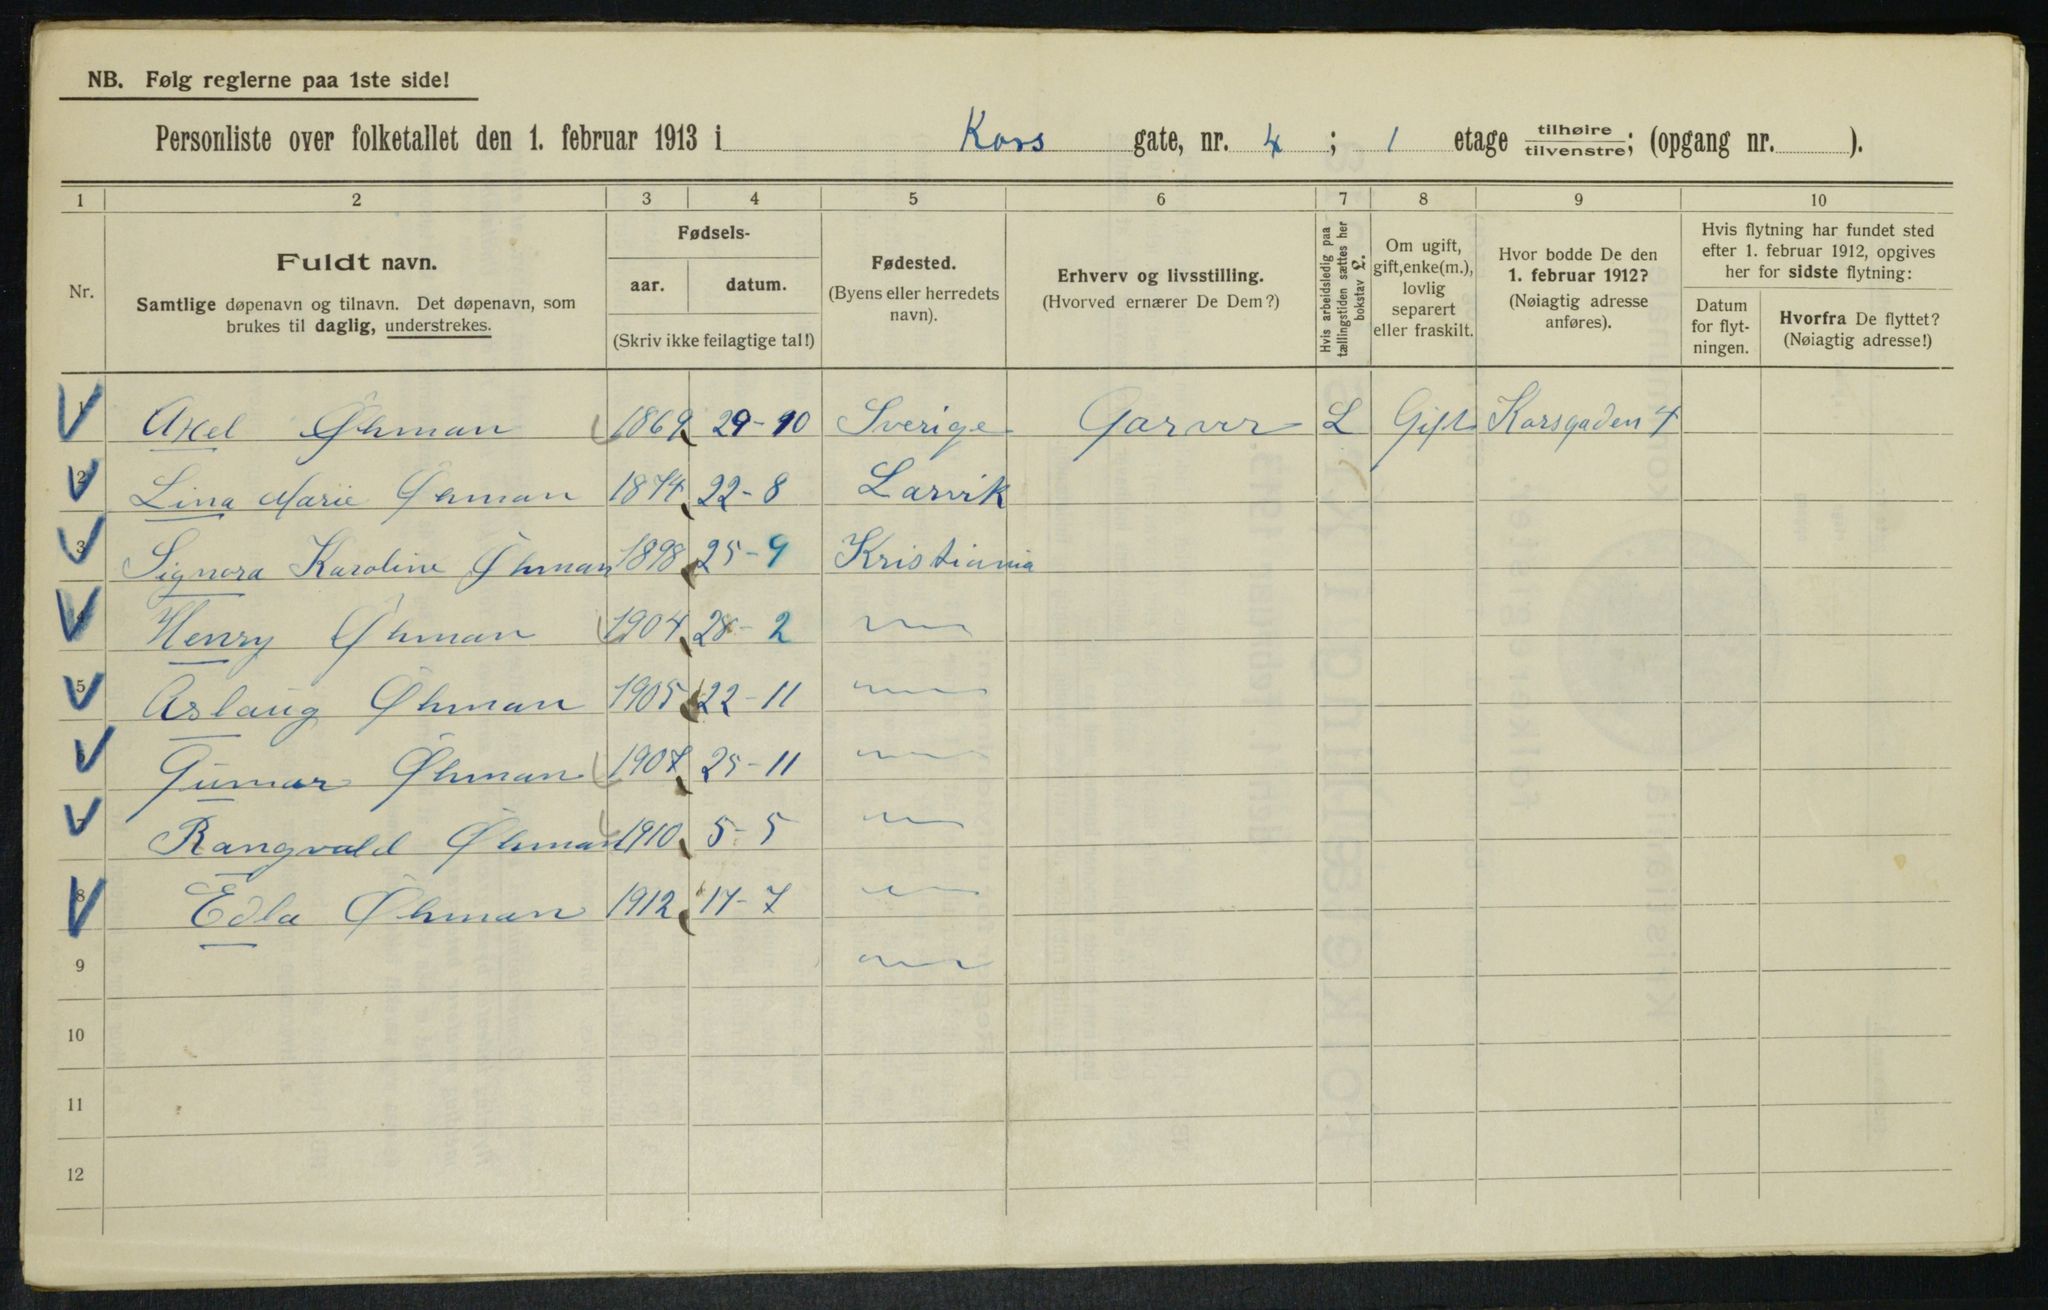 NB. Følg reglerne paa 1ste side!
Personliste over folketallet den 1. februar 1913 i Kors gate, nr. 4 ; 1 etage tilhøire / tilvenstre; (opgang nr. ).
1 2 3 4 5 6 7 8 9 10
Nr.
Fuldt navn.
Samtlige døpenavn og tilnavn. Det døpenavn, som
brukes til daglig, understrekes.
Fødsels-
aar. datum.
(Skriv ikke feilagtige tal!)
Fødested.
(Byens eller herredets
navn).
Erhverv og livsstilling.
(Hvorved ernærer De Dem?)
Hvis arbeidsledig paa
tællingstiden sættes her
bokstav L.
Om ugift,
gift, enke(m.),
lovlig
separert
eller fraskilt.
Hvor bodde De den
1. februar 1912?
(Nøiagtig adresse
anføres).
Hvis flytning har fundet sted
efter 1. februar 1912, opgives
her for sidste flytning:
Datum
for flyt-
ningen.
Hvorfra De flyttet?
(Nøiagtig adresse!)
1 Axel Øhman 1869 29-10 Sverige Garver L Gift Korsgaden 4
2 Lina Marie Øhman 1874 22-8 Larvik
3 Signora Karoline Øhman 1898 25-9 Kristiania
4 Henry Øhman 1904 28-2
5 Aslaug Øhman 1905 22-11
6 Gunnar Øhman 1907 25-11
7 Rangvald Øhman 1910 5-5
8 Edla Øhman 1912 17-7
9
10
11
12